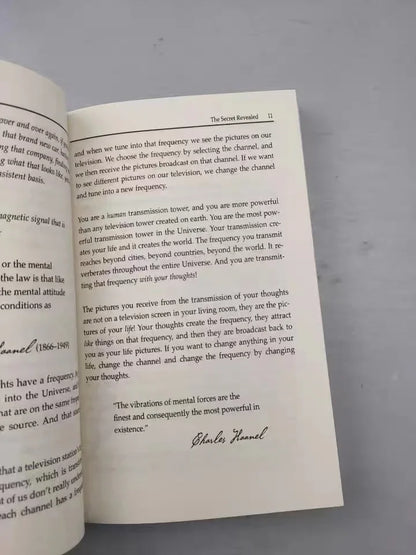 over and over again, if y
that brand new car, ha
ng that company, finding
ng what that looks like, yo
sistent basis.
magnetic signal that is
or the mental
the law is that like
the mental attitude
conditions as
(1866–1949)
ghts have a frequency. A
into the Universe, and
hat are on the same freq
e source. And that sour
that a television station's
quency, which is transm
t of us don't really under
each channel has a freq
The Secret Revealed 11
and when we tune into that frequency we see the pictures on our
television. We choose the frequency by selecting the channel, and
we then receive the pictures broadcast on that channel. If we want
to see different pictures on our television, we change the channel
and tune into a new frequency.
You are a human transmission tower, and you are more powerful
than any television tower created on earth. You are the most pow-
erful transmission tower in the Universe. Your transmission cre-
ates your life and it creates the world. The frequency you transmit
reaches beyond cities, beyond countries, beyond the world. It re-
verberates throughout the entire Universe. And you are transmit-
ting that frequency with your thoughts!
The pictures you receive from the transmission of your thoughts
are not on a television screen in your living room, they are the pic-
tures of your life! Your thoughts create the frequency, they attract
like things on that frequency, and then they are broadcast back to
you as your life pictures. If you want to change anything in your
life, change the channel and change the frequency by changing
your thoughts.
"The vibrations of mental forces are the
finest and consequently the most powerful in
existence."
Charles Haanel